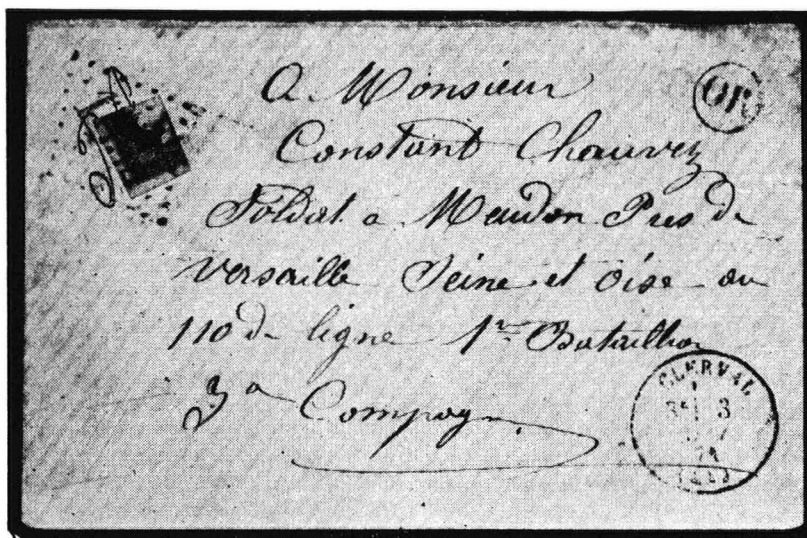 A Monsieur
OR
Constant Chauvey
Soldat a Meudon Pres de
Versaille Seine et Oise au
110 de ligne 1er Bataillon
3e Compagn
CLERVAL
3